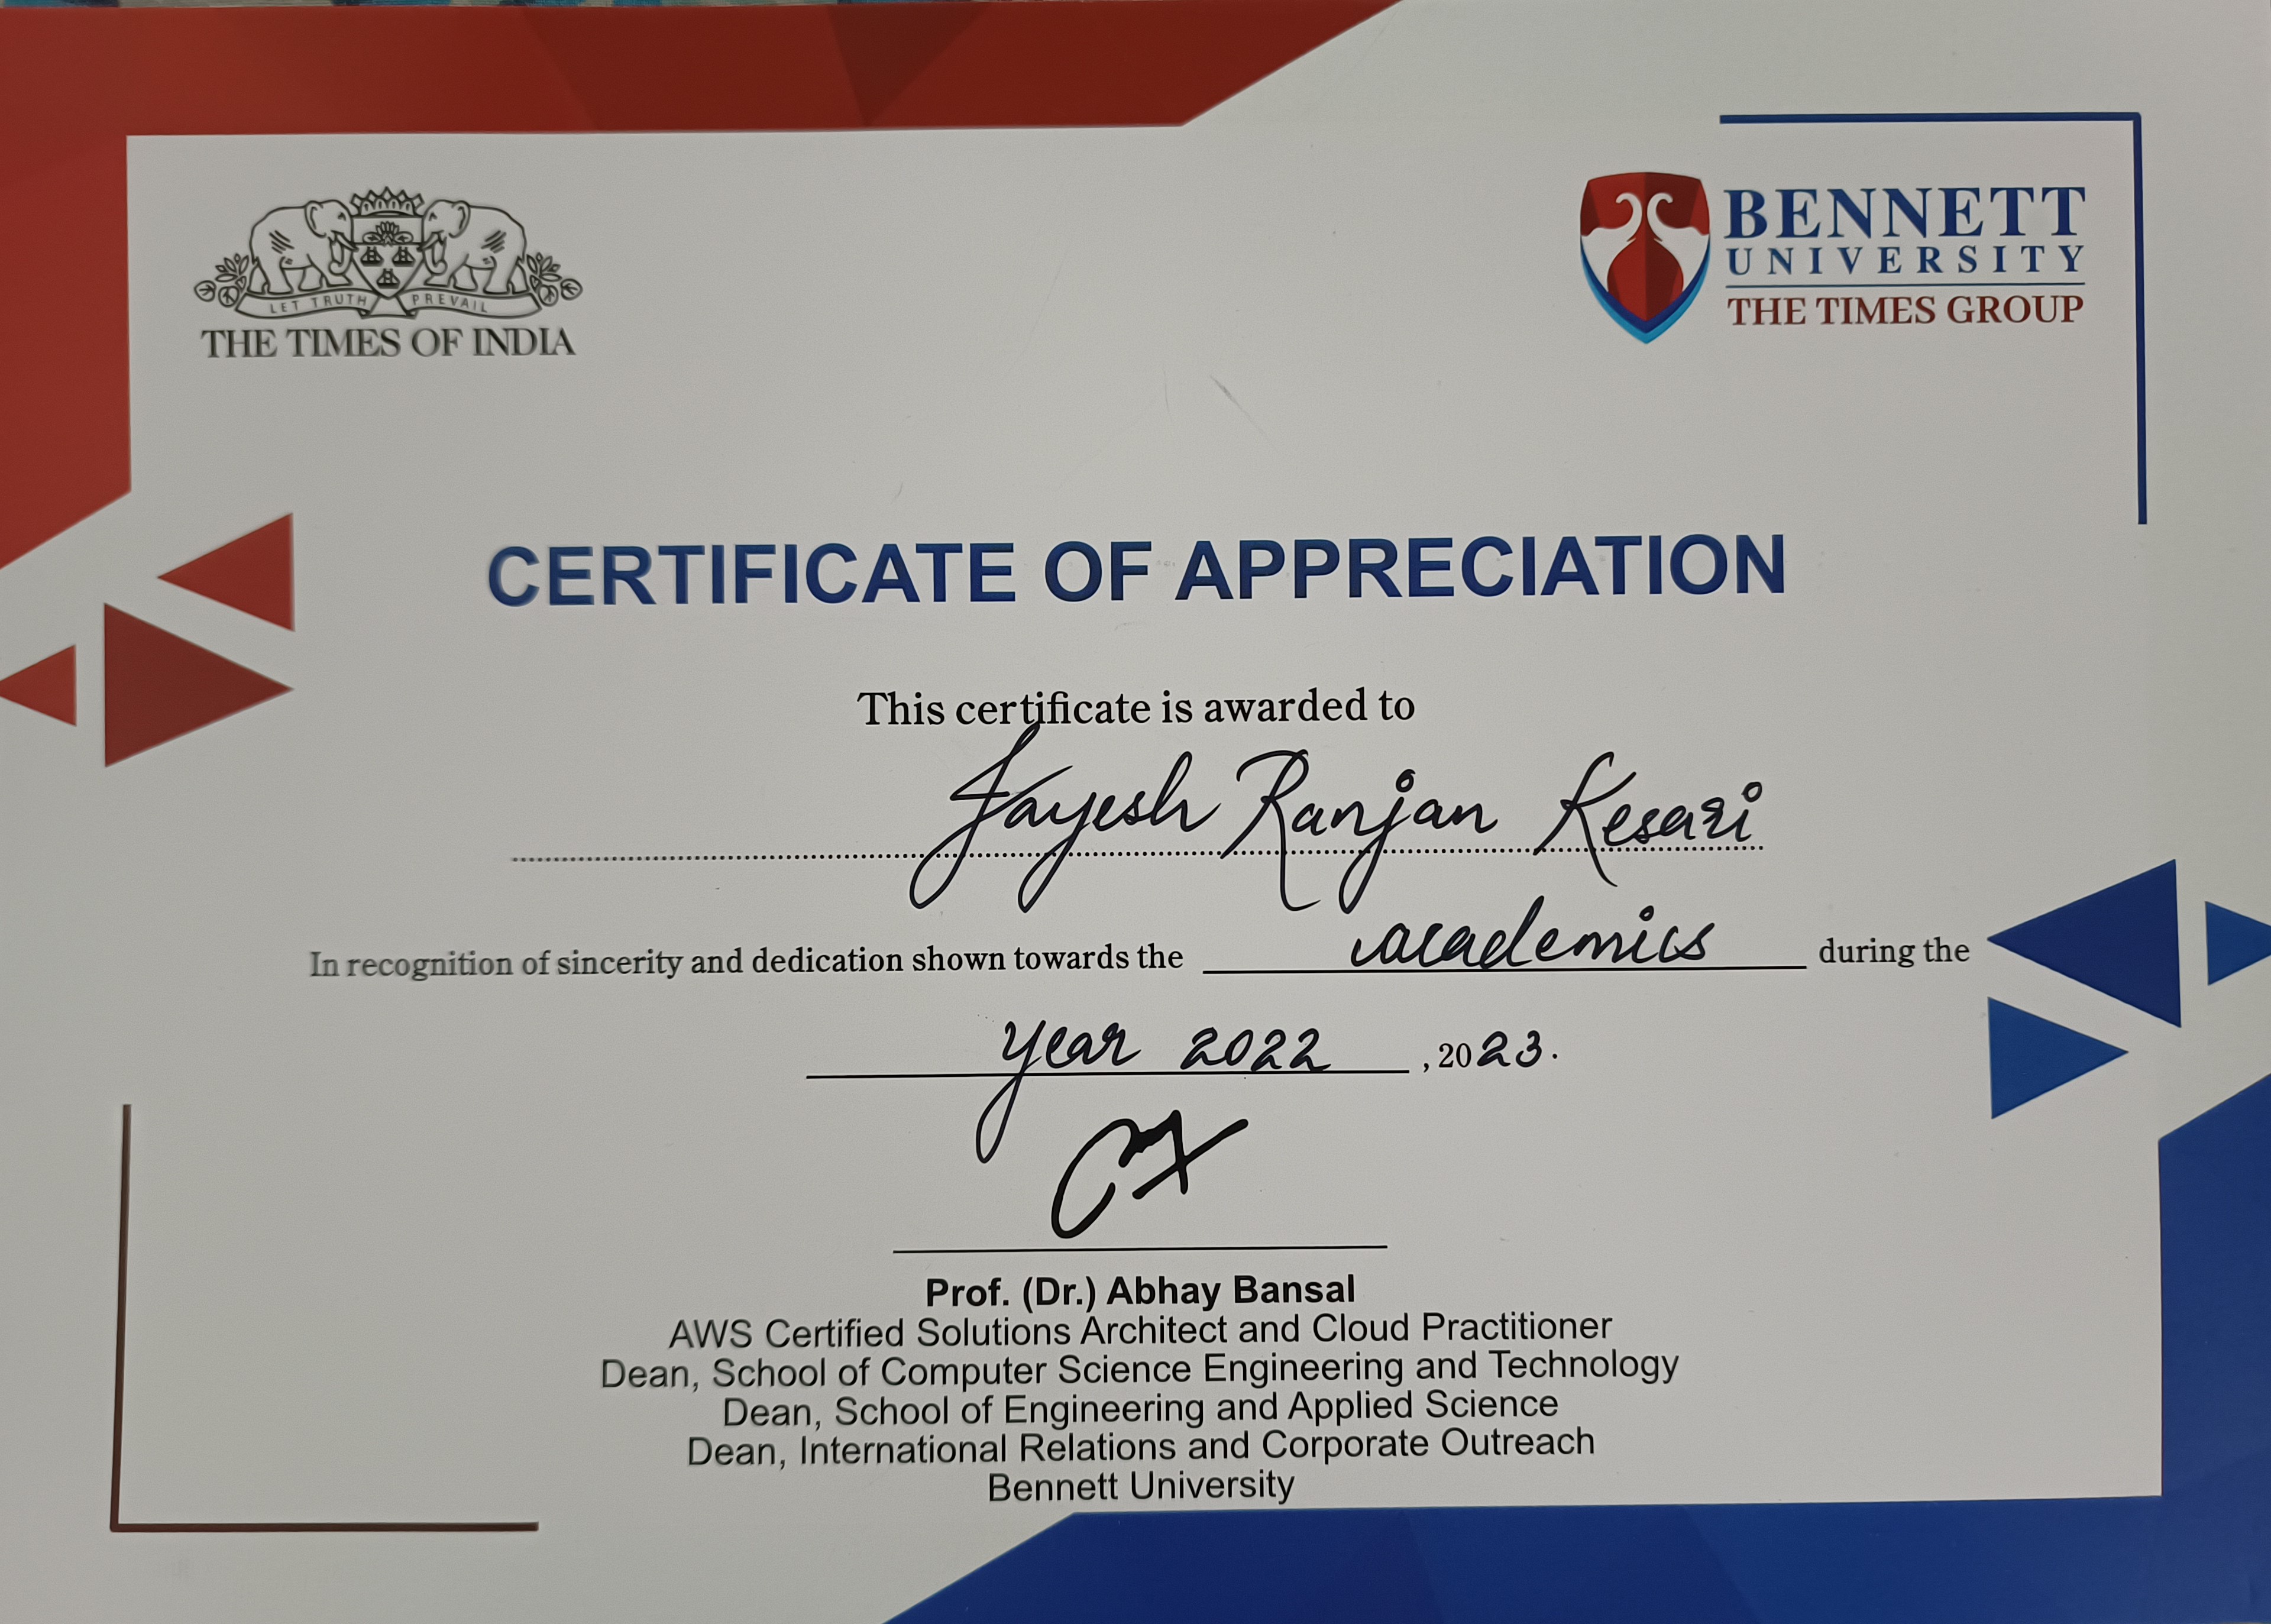 LET TRUTH PREVAIL
THE TIMES OF INDIA
BENNETT
UNIVERSITY
THE TIMES GROUP
CERTIFICATE OF APPRECIATION
This certificate is awarded to
Jayesh Ranjan Kesari
In recognition of sincerity and dedication shown towards the academics during the
year 2022, 2023.
Prof. (Dr.) Abhay Bansal
AWS Certified Solutions Architect and Cloud Practitioner
Dean, School of Computer Science Engineering and Technology
Dean, School of Engineering and Applied Science
Dean, International Relations and Corporate Outreach
Bennett University